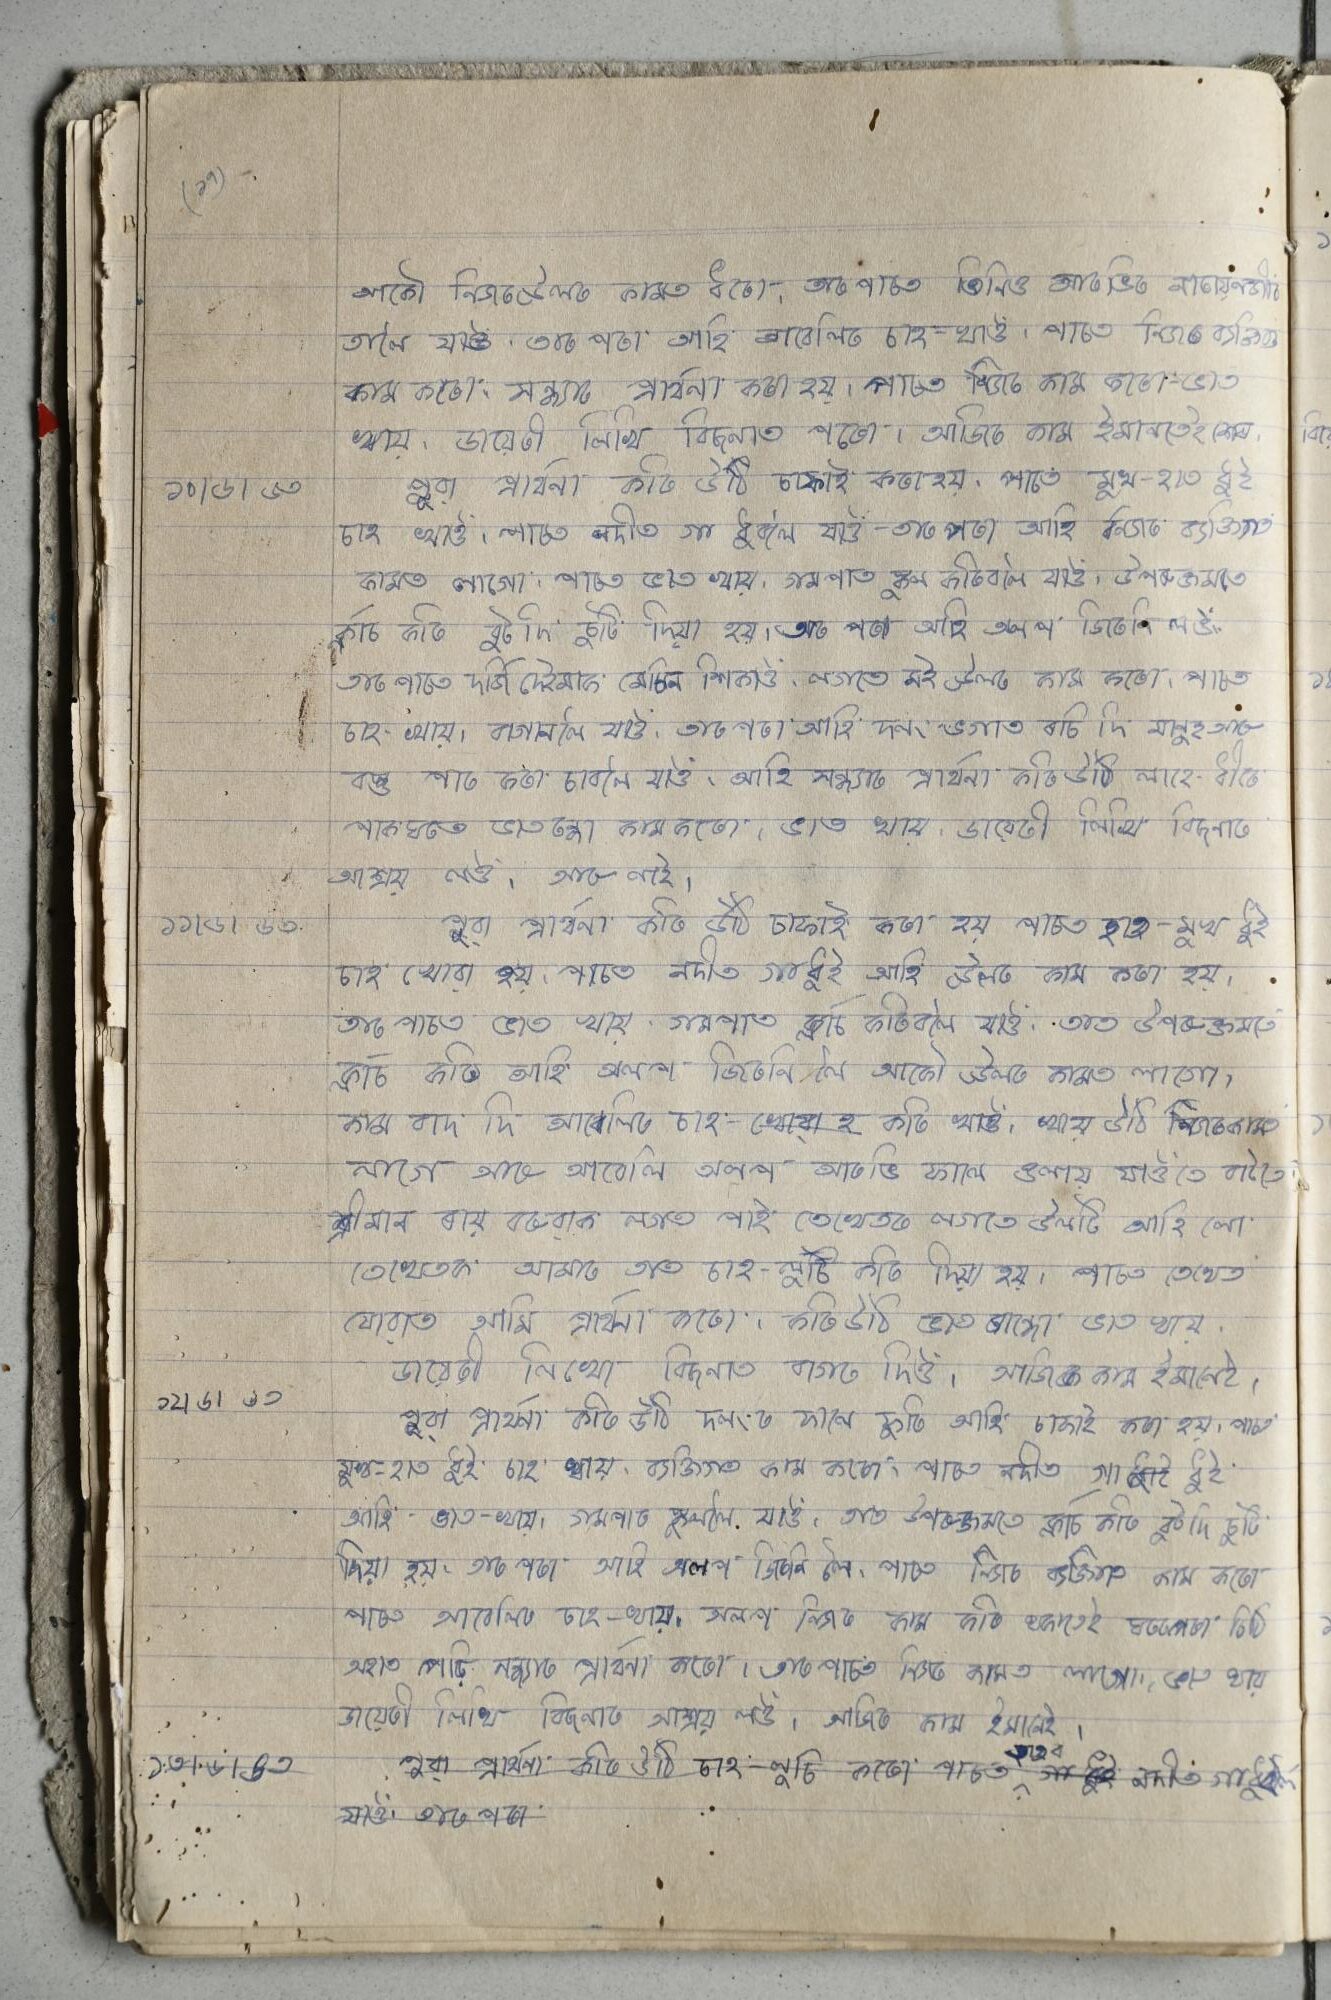 (১৭)
আকৌ নিজৰ উলৰ কামত ধৰো, তাৰ পাচত তিনিও আৰতিৰ
তালৈ যাওঁ, তাৰ পৰা আহি আবেলিৰ চাহ-খাওঁ, পাচত নিজৰ ব্যক্তিগত
কাম কৰো, সন্ধ্যাৰ প্ৰাৰ্থনা কৰা হয়, পাচত নিজৰ কাম কৰো-ভাত
খায়, ডায়েৰী লিখি বিচনাত পৰো, আজিৰ কাম ইমানতেই শেষ,
১০।৬।৬৩ পুৱা প্ৰাৰ্থনা কৰি উঠি চাফাই কৰা হয়, পাচত মুখ-হাত ধুই
চাহ খাওঁ, পাচত নদীত গা ধুবলৈ যাওঁ-তাৰ পৰা আহি নিজৰ ব্যক্তিগত
কামত লাগো, পাচত ভাত খায়, গমপাত স্কুল কৰিবলৈ যাওঁ, উপৰুক্তমতে
ক্লাচ কৰি বুট দি চুটি দিয়া হয়, তাৰ পৰা আহি অলপ জিৰণি লওঁ,
তাৰ পাচত দৰ্জি দেইমাক মেচিন শিকাওঁ, লগতে মই উলৰ কাম কৰো, পাচত
চাহ খায়, বাগানলৈ যাওঁ, তাৰ পৰা আহি দলং ভগাত ৰচি দি মানুহ আৰু
বস্তু পাৰ কৰা চাবলৈ যাওঁ, আহি সন্ধ্যাৰ প্ৰাৰ্থনা কৰি উঠি লাহে-ধীৰে
পাকঘৰতে ভাত ৰন্ধা কাম কৰো, ভাত খায়, ডায়েৰী লিখি বিচনাত
আশ্ৰয় লওঁ, আৰু নাই,
১১।৬।৬৩ পুৱা প্ৰাৰ্থনা কৰি উঠি চাফাই কৰা হয় পাচত হাত-মুখ ধুই
চাহ খোৱা হয়, পাচত নদীত গা ধুই আহি উলৰ কাম কৰা হয়,
তাৰ পাচত ভাত খায় গমপাত ক্লাচ কৰিবলৈ যাওঁ, তাত উপৰুক্তমতে
ক্লাচ কৰি আহি অলপ জিৰণি লৈ আকৌ উলৰ কামত লাগো,
কাম বাদ দি আবেলিৰ চাহ-খোৱা হ কৰি খাওঁ, খায় উঠি নিজৰ কামত
লাগে আৰু আবেলি অলপ আৰতি ফালে ওলায় যাওঁতে বাটতে
শ্ৰীমান ৰায় বৰুৱাক লগত পাই তেখেতৰ লগতে উলটি আহিলো
তেখেতক আমাৰ তাত চাহ-লুচি কৰি দিয়া হয়, পাচত তেখেত
যোৱাত আমি প্ৰাৰ্থনা কৰো, কৰি উঠি ভাত ৰান্ধো ভাত খায়,
ডায়েৰী লিখো বিচনাত বাগৰ দিওঁ, আজিৰ কাম ইমানেই,
১২।৬।৬৩ পুৱা প্ৰাৰ্থনা কৰি উঠি দলংৰ ফালে ফুৰি আহি চাফাই কৰা হয়, পাচত
মুখ-হাত ধুই চাহ খায়, ব্যক্তিগত কাম কৰো, পাচত নদীত গা ধুই
আহি ভাত-খায়, গমপাত স্কুললৈ যাওঁ, তাত উপৰুক্তমতে ক্লাচ কৰি বুট দি চুটি
দিয়া হয়, তাৰ পৰা আহি অলপ জিৰণি লৈ, পাচত নিজৰ ব্যক্তিগত কাম কৰো
পাচত আবেলিৰ চাহ-খায়, অলপ নিজৰ কাম কৰি থকাতেই ঘৰৰ পৰা চিঠি
অহাত পঢ়ি সন্ধ্যাৰ প্ৰাৰ্থনা কৰো, তাৰ পাচত নিজৰ কামত লাগো, ভাত খায়
ডায়েৰী লিখি বিচনাত আশ্ৰয় লওঁ, আজিৰ কাম ইমানেই,
১৩।৬।৬৩ পুৱা প্ৰাৰ্থনা কৰি উঠি চাহ-লুচি কৰো পাচত গা ধুই নদীত গা ধুবলৈ
যাওঁ তাৰ পৰা